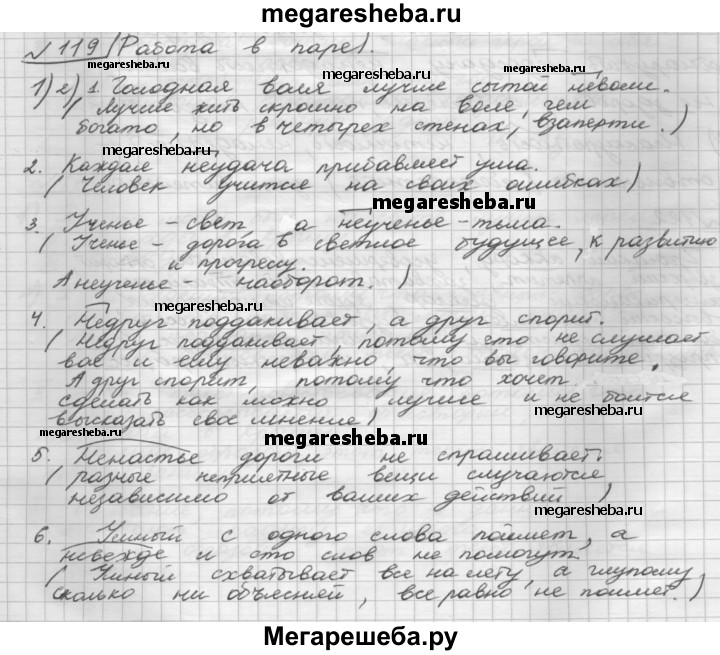 megaresheba.ru
№119 (Работа в паре).
megaresheba.ru
1) 2) 1. Голодная воля лучше сытой неволи.
(Лучше жить скромно на воле, чем
богато, но в четырех стенах, взаперти.)
megaresheba.ru
2. Каждая неудача прибавляет ума.
(Человек учится на своих ошибках)
megaresheba.ru
3. Ученье - свет, а неученье - тьма.
(Ученье - дорога в светлое будущее, к развитию
и прогрессу.
А неученье - наоборот.)
megaresheba.ru
4. Недруг поддакивает, а друг спорит.
(Недруг поддакивает, потому что не слушает
вас и ему неважно, что вы говорите.
А друг спорит, потому что хочет
сделать как можно лучше и не боится
высказать свое мнение)
megaresheba.ru
megaresheba.ru
5. Ненастье дороги не спрашивает.
(разные неприятные вещи случаются
независимо от ваших действий)
megaresheba.ru
6. Умный с одного слова поймет, а
невежде и сто слов не помогут.
megaresheba.ru
(Умный схватывает все на лету, а глупому,
сколько ни объясняй, все равно не поймет.)
Мегарешеба.ру